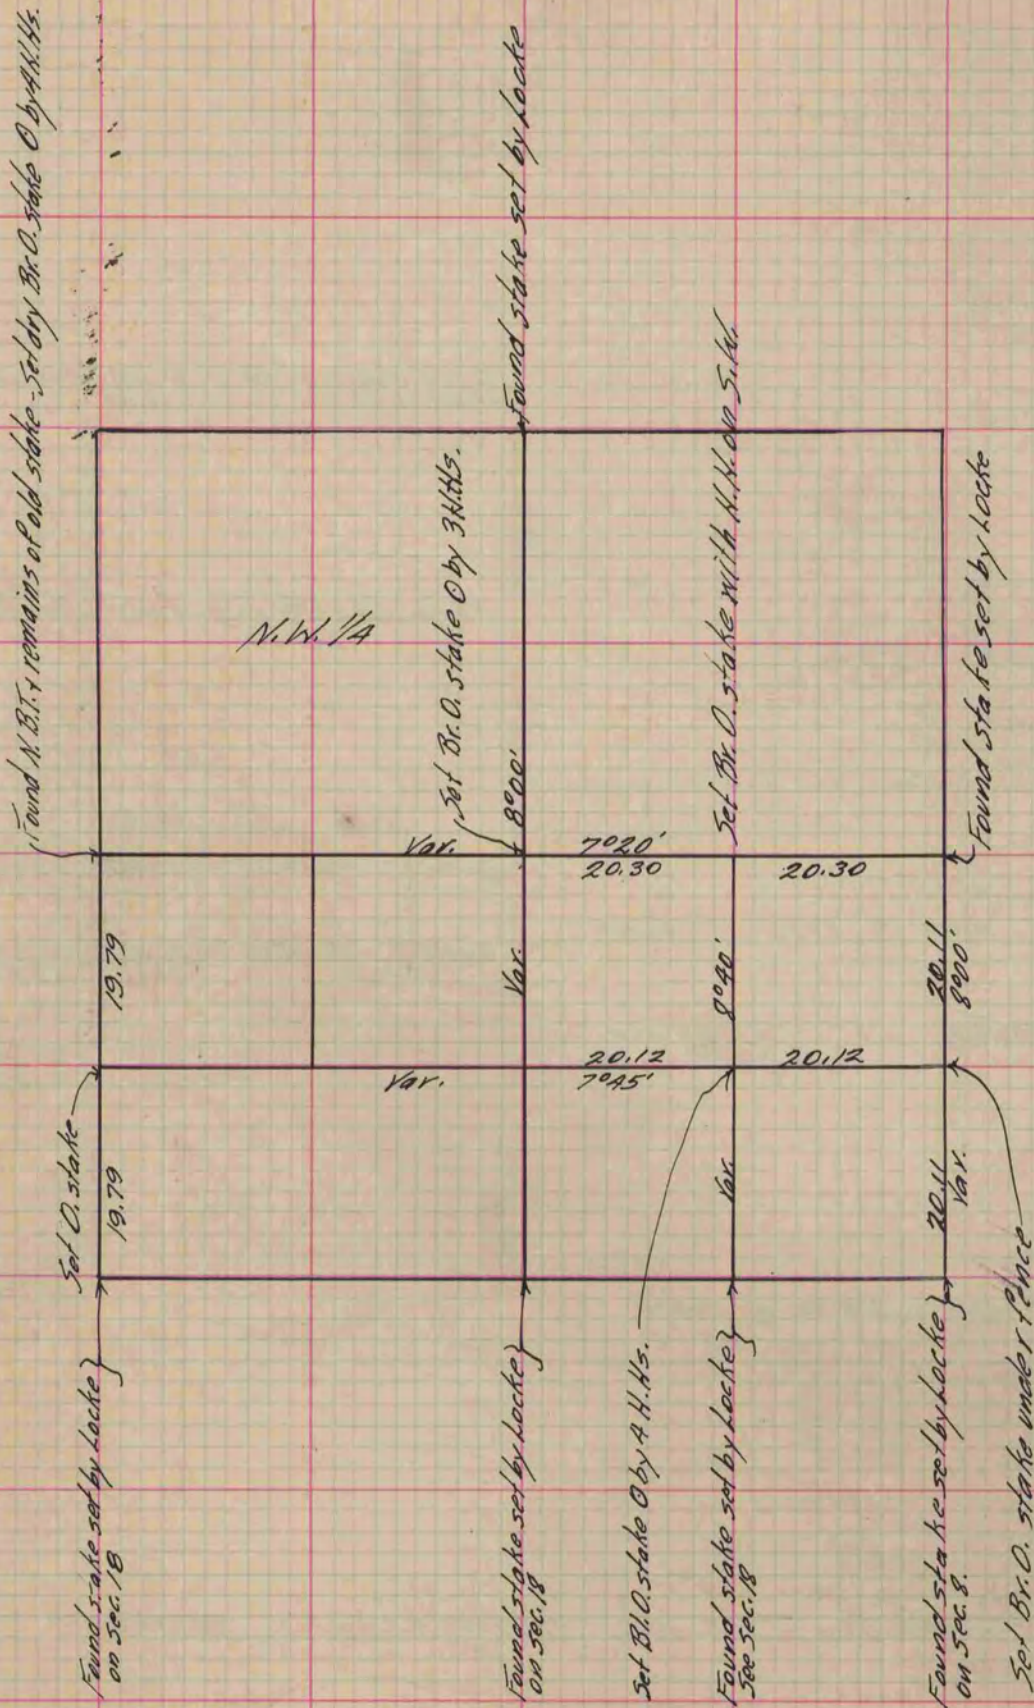 Found N. B.T. + remains of old stake - Set dry Br. O. stake O by 4 H.Hs.
Found stake set by Locke
N.W. 1/4
Set Br. O. stake O by 3 H.Hs.
Set Br. O. stake with H.H. on S.W.
Found stake set by Locke
Var. 7°20'
20.30
20.30
8°00'
Var.
19.79
19.79
Set O. stake
8°40'
Var.
20.11
8°00'
20.11
Var.
20.12
20.12
Var. 7°45'
Found stake set by Locke
on sec. 18
Found stake set by Locke
on sec. 18
Set Bl. O. stake O by 4 H.Hs.
Found stake set by Locke
See sec. 18
Found stake set by Locke
on sec. 8.
Set Br. O. stake under fence